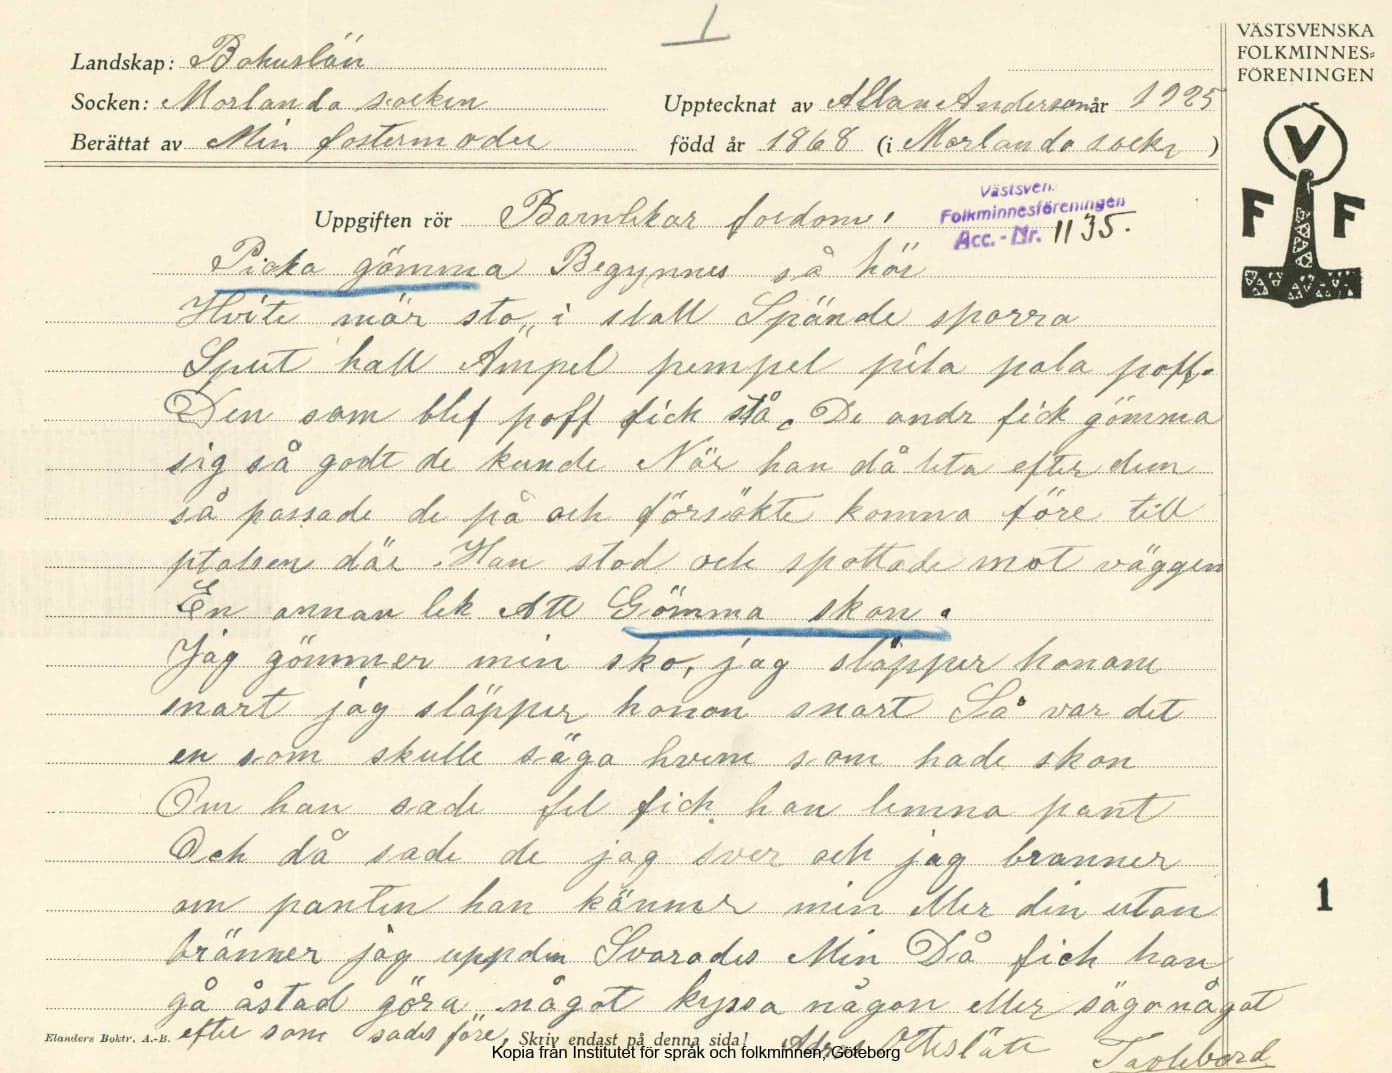 1
VÄSTSVENSKA
FOLKMINNES=
FÖRENINGEN
V
F F
Landskap: Bohuslän
Socken: Morlanda socken
Upptecknat av Allan Anderson år 1925
Berättat av Min fostermoder
född år 1868 (i Morlanda sockn )
Västsven.
Folkminnesföreningen
Acc.-Nr. 1135.
Uppgiften rör Barnlekar fordom.
gömma Begynnes så här
Hvite mär sto i stall Spände sporra
Sput hall Ämpel pempel pila pola poff.
Den som blef poff fick stå. De andr fick gömma
sig så godt de kunde När han då leta efter dem
så passade de på och försökte komma före till
platsen där. Han stod och spottade mot väggen
En annan lek Att Gömma skon.
Jag gömmer min sko, jag släpper honom
snart jag släpper honon snart Så var det
en som skulle säga hvem som hade skon
Om han sade fel fick han lemna pant
Och då sade de jag sver och jag branner
om panten han känner min eller din utan
bränner jag uppden Svarades Min Då fick han
gå åstad göra något kyssa någon eller säga något
efter som sades före,
Elanders Boktr. A.-B.
Skriv endast på denna sida!
Kopia från Institutet för språk och folkminnen, Göteborg
1